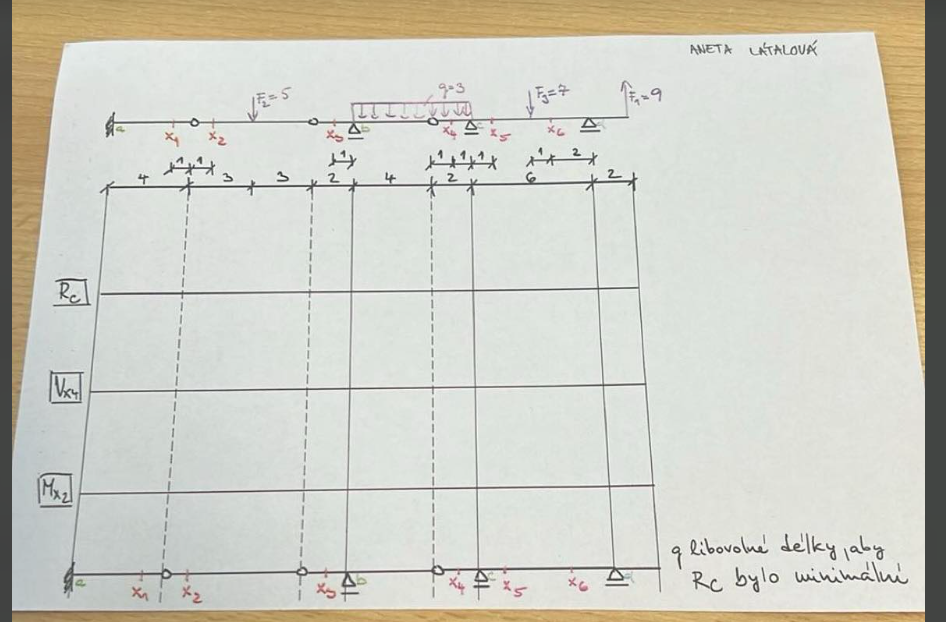 ANETA LÁTALOVÁ
F₂=5
q=3
F₃=7
F₁=9
a
x₁
x₂
x₃
b
x₄
c
x₅
x₆
d
1 1
1
1 1 1
1 2
4 3 3 2 4 2 6 2
Rc
Vx₄
Mx₂
a
x₁
x₂
x₃
b
x₄
c
x₅
x₆
d
q libovolné délky, aby
Rc bylo minimální